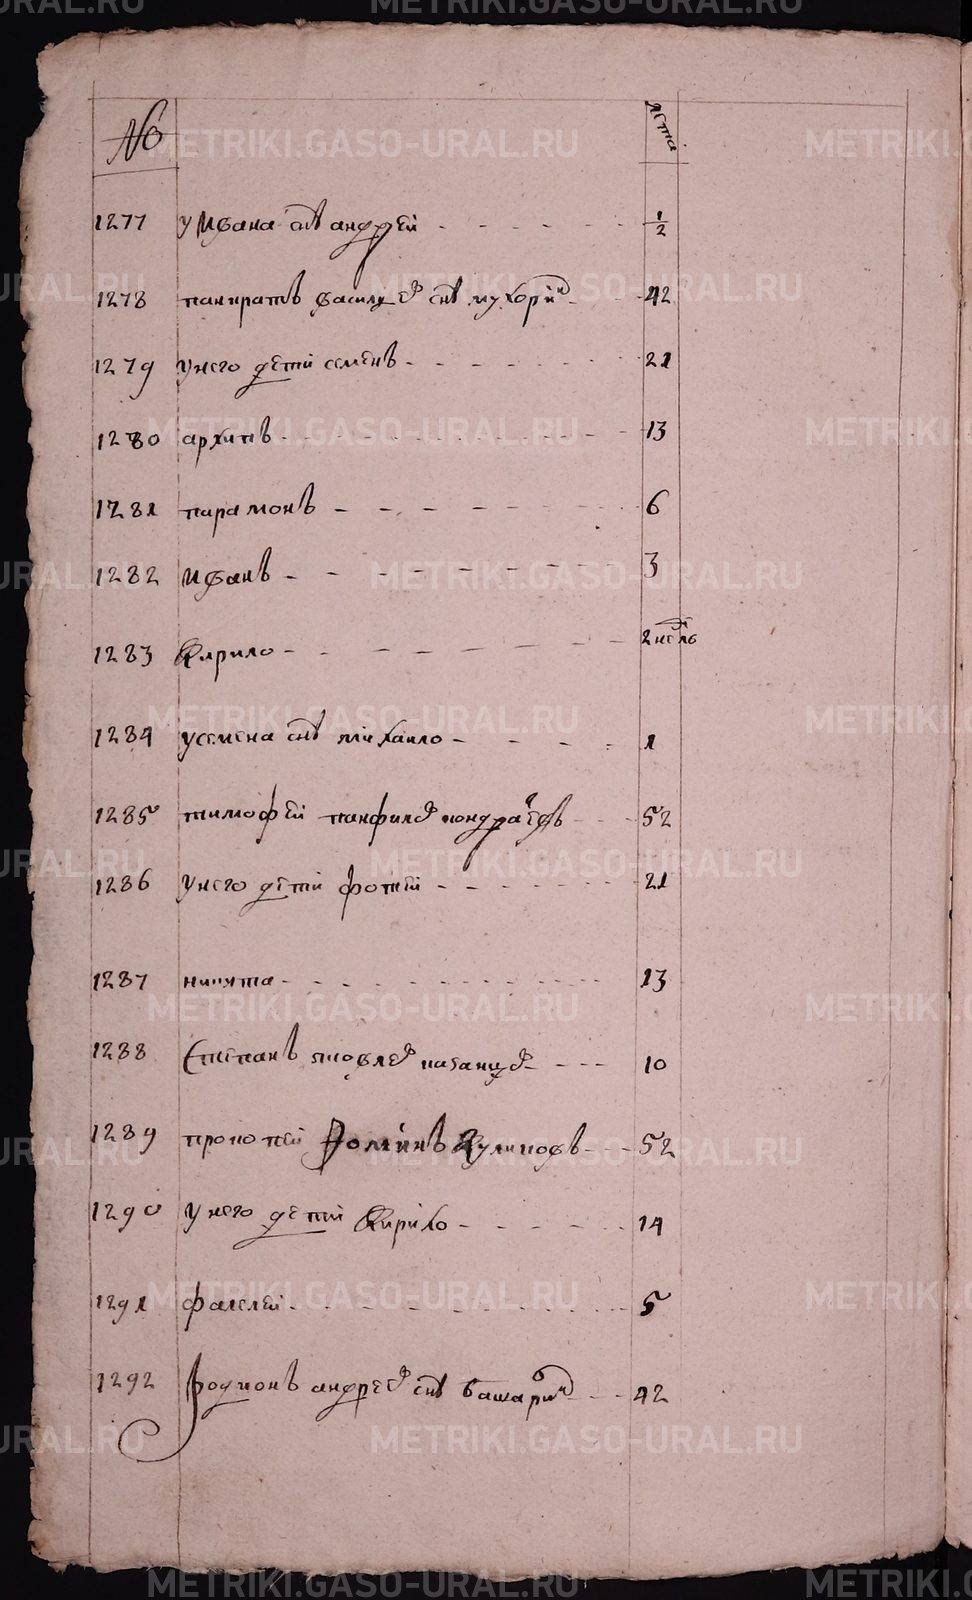 № лета
1277 у Ивана снъ андрей - - - - - - 1/2
1278 панкратъ василѣв снъ мухорин - - 42
1279 у него дети семенъ - - - - - - 21
1280 архипъ - - - - - - 13
1281 парамонъ - - - - - - 6
1282 Иванъ - - - - - - 3
1283 Кирило - - - - - - 2 неѣль
1284 у семена снъ михаило - - - - 1
1285 тимофей панфилов кондратевъ - - - 52
1286 у него дети фотей - - - - - - 21
1287 никита - - - - - - 13
1288 Степанъ яковлев казанцов - - - - 10
1289 прокопей Фоминъ Куликовъ - - - 52
1290 у него дети Кирило - - - - - - 14
1291 фалелей - - - - - - 5
1292 Родионъ андреев снъ башарин - - 42
METRIKI.GASO-URAL.RU